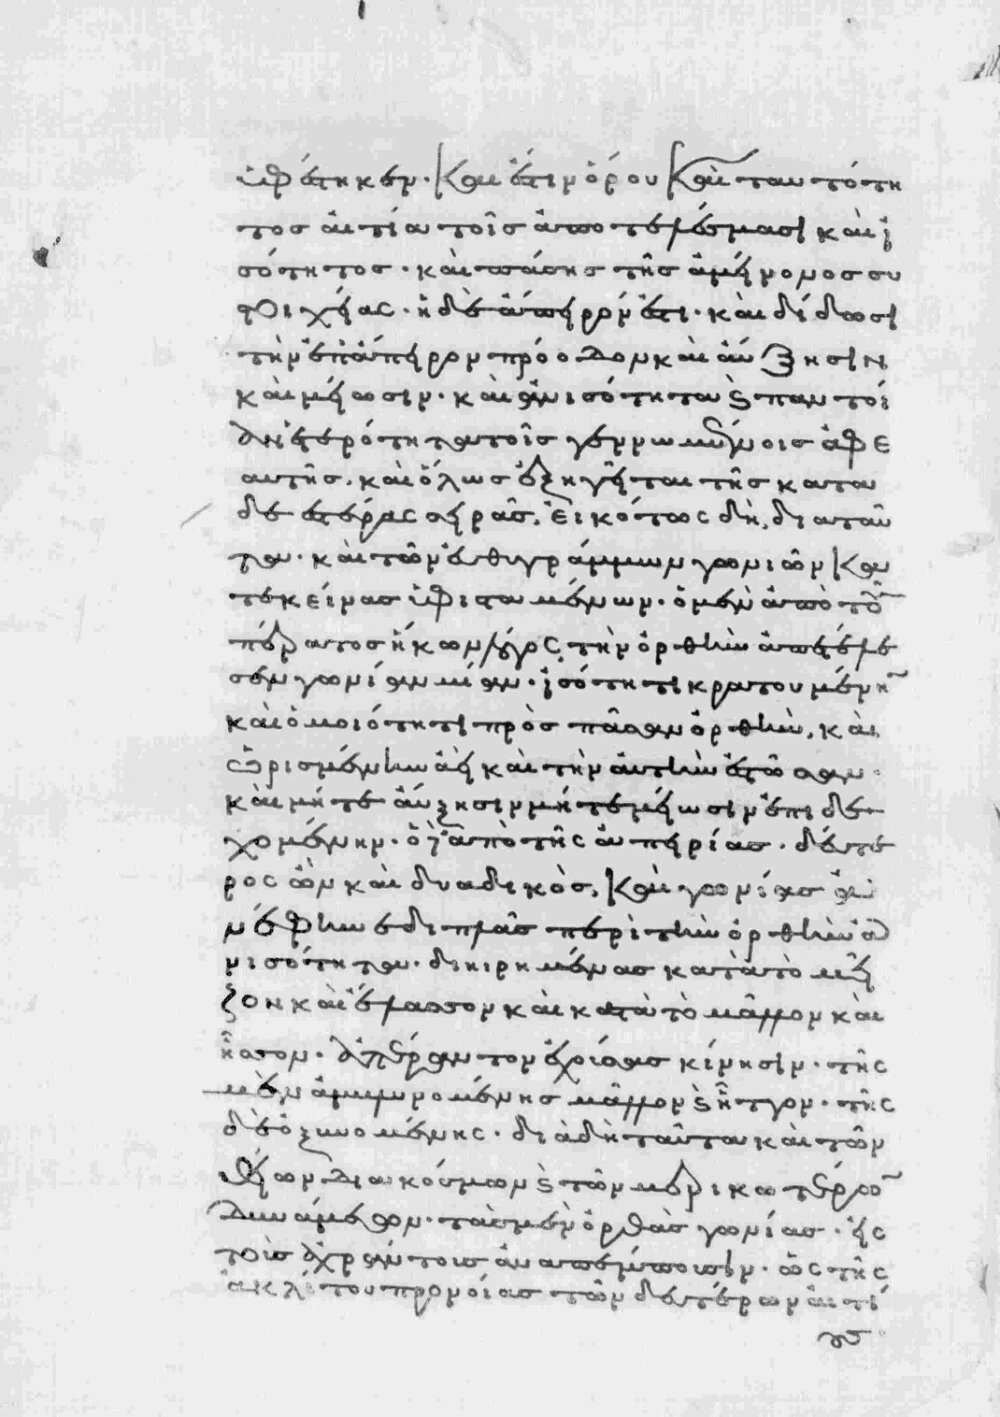 ὑφέστηκεν· καὶ ἔστιν ὅρου καὶ ταυτότη
τος αἰτία τοῖς ἀποτελέσμασι καὶ ἰ
σότητος· καὶ πάσης τῆς ἀμείνονος συ
στοιχείας· ἡ δὲ ἄπειρόν ἐστι· καὶ δίδωσι
τὴν ἐπ' ἄπειρον πρόοδον καὶ αὔξησιν
καὶ μείωσιν· καὶ ἀνισότητα καὶ παντοί
αν ἑτερότητα τοῖς γεννωμένοις ἀφ' ἑ
αυτῆς· καὶ ὅλως ἐξηγεῖται τῆς κατα
δεεστέρας σειρᾶς. εἰκότως δὴ, διὰ ταῦ
τα· καὶ τῶν εὐθυγράμμων γωνιῶν κα
τ' ἐκείνας ὑφισταμένων· ὁ μὲν ἀπὸ τοῦ
πέρατος ἥκων λόγος, τὴν ὀρθὴν ἀπετέλε
σεν γωνίαν μίαν· ἰσότητι κρατουμένην
καὶ ὁμοιότητι πρὸς πᾶσαν ὀρθὴν, καὶ
ὡρισμένην ἀεὶ καὶ τὴν αὐτὴν ἑστῶσαν·
καὶ μήτε αὔξησιν μήτε μείωσιν ἐπιδε
χομένην· ὁ δ' ἀπὸ τῆς ἀπειρίας· δεύτε
ρος ὢν καὶ δυαδικὸς, καὶ γωνίας ἀ
νέφηνε διπλᾶς περὶ τὴν ὀρθὴν ἀ
νισότητι· διῃρημένας κατὰ τὸ μεῖ
ζον καὶ ἔλασσον καὶ κατὰ τὸ μᾶλλον καὶ
ἧττον· ἀπέραντον ἐχούσας κίνησιν· τῆς
μὲν ἀμβλυνομένης μᾶλλον καὶ ἧττον· τῆς
δὲ ὀξυνομένης· διὰ δὴ ταῦτα καὶ τῶν
θείων διακόσμων καὶ τῶν μερικωτέρων
δυνάμεων· τὰς μὲν ὀρθὰς γωνίας· εἰς
τοὺς ἀχράντους ἀναπέμπουσιν· ὡς τῆς
ἀκλίτου προνοίας τῶν δευτέρων αἰτί
ας·